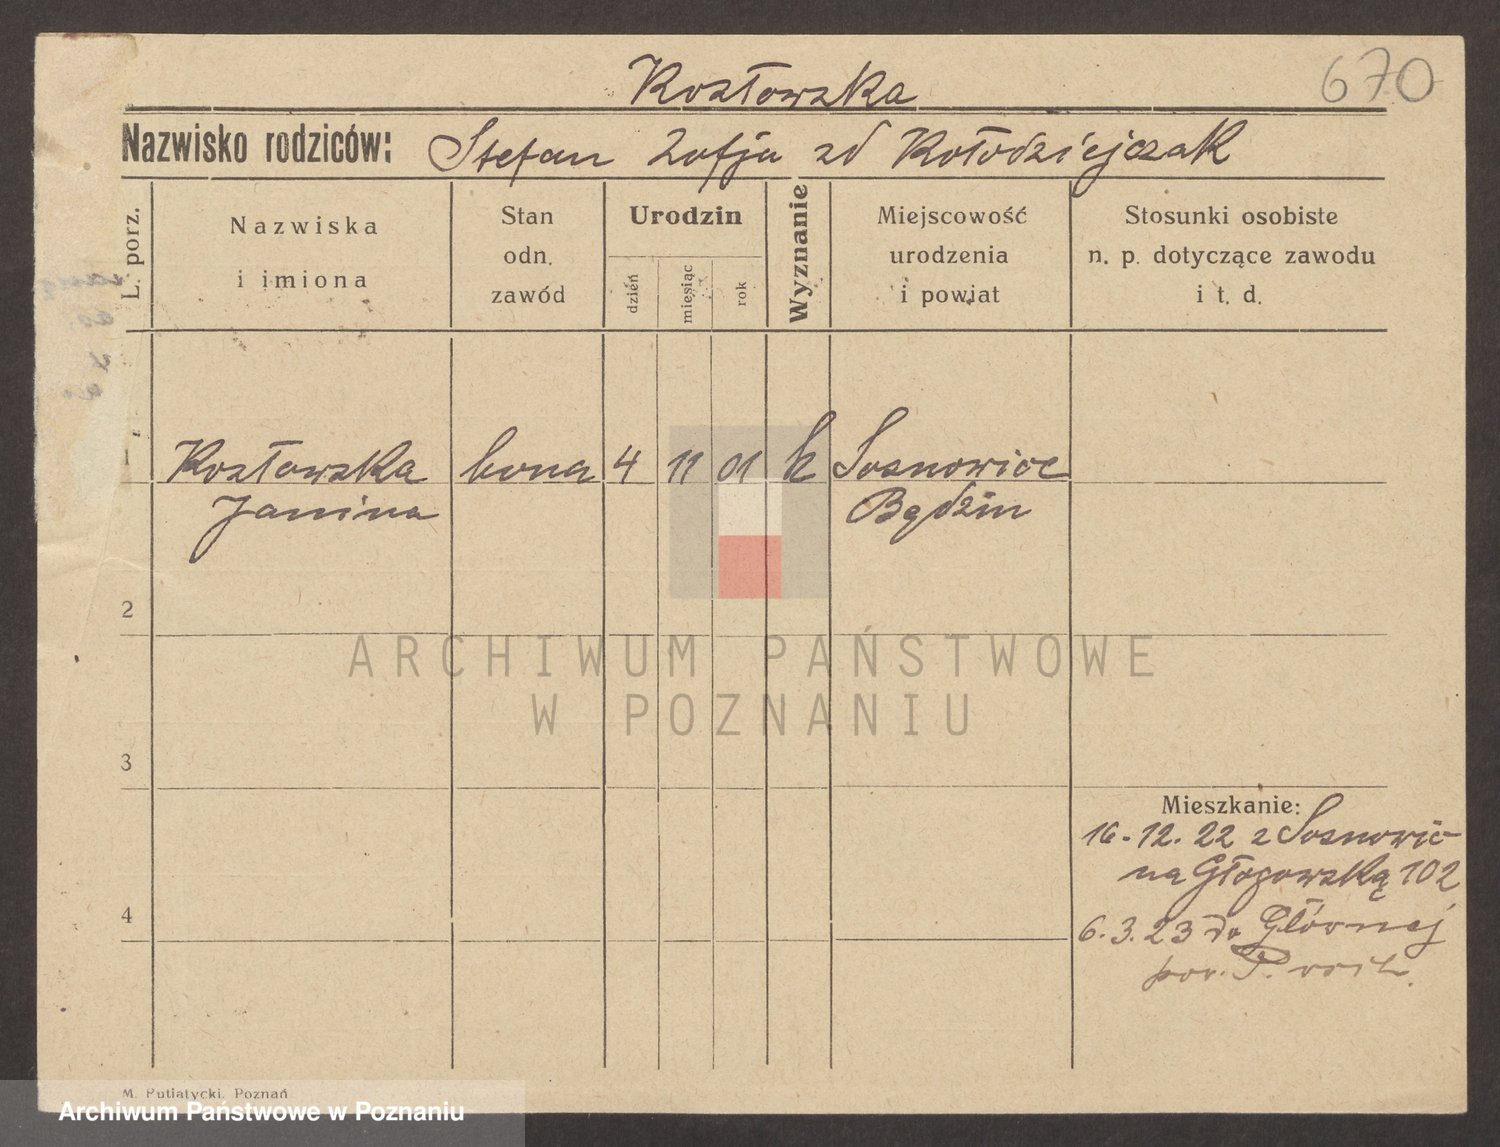 670
Kozłowska
Nazwisko rodziców: Stefan Zofja zd Kołodziejczak
L. porz.
Nazwiska
i imiona
Stan
odn.
zawód
Urodzin
dzień
miesiąc
rok
Wyznanie
Miejscowość
urodzenia
i powiat
Stosunki osobiste
n. p. dotyczące zawodu
i t. d.
1 Kozłowska bona 4 11 01 k Sosnowice
Janina Będzin
2
ARCHIWUM PAŃSTWOWE
W POZNANIU
3
Mieszkanie:
16.12.22 z Sosnowic
na Głogowską 102
4
6.3.23 do Głównej
pow. P.
M. Putiatycki, Poznań
Archiwum Państwowe w Poznaniu